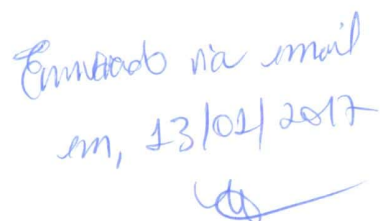 Enviado via email
em, 13/01/2017